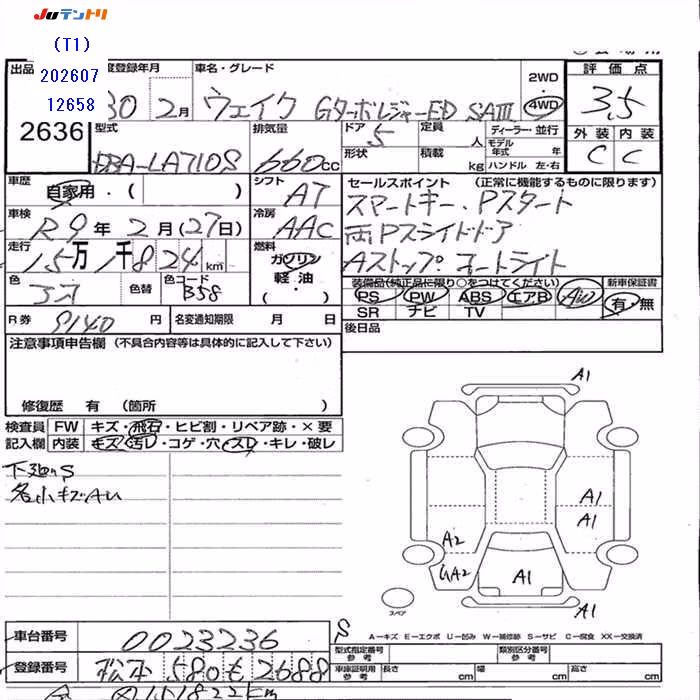 JUテントリ
(T1)
202607
12658
出品
2636
度登録年月
30 2月
車名・グレード
ウェイク GターボレジャーED SAⅢ
2WD
4WD
評価点
3.5
外装 内装
C C
型式
DBA-LA710S
排気量
660cc
ドア
5
形状
定員
人
積載
kg
ディーラー・並行
モデル年式 年
ハンドル 左・右
車歴
自家用・( )
シフト
AT
セールスポイント (正常に機能するものに限ります)
スマートキー.Pスタート
両Pスライドドア
Aストップ.オートライト
車検
R9年2月(27日)
冷房
AAC
走行
15万1千824km
燃料
ガソリン
軽油
( ・ )
色
色替
色コード
B58
装備品(純正品に限り○をつけてください)
PS PW ABS エアB AW
SR ナビ TV
新車保証書
有・無
R券
9140円
名変通知期限 月 日
後日品
注意事項申告欄 (不具合内容等は具体的に記入して下さい)
修復歴 有 (箇所 )
検査員記入欄
FW キズ・飛石・ヒビ割・リペア跡・×要
内装 キズ・汚レ・コゲ・穴・スレ・キレ・破レ
下廻りS
各小キズAU
A1
A1
A1
A2
GA2
A1
A1
スペア
S
A－キズ E－エクボ U－凹み W－補修跡 S－サビ C－腐食 XX－交換済
車台番号
0023236
登録番号
松本 580 も 2688
型式指定番号
参考
類別区分番号
参考
車庫証明用
参考
長さ cm
幅 cm
高さ cm
151822km